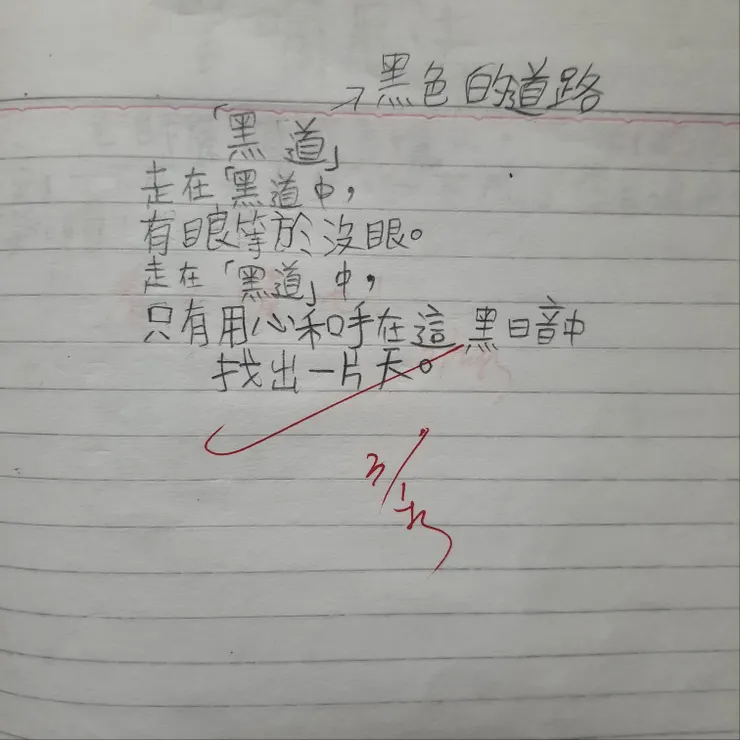 →黑色的道路
「黑道」
走在「黑道中,
有眼等於沒眼。
走在「黑道」中,
只有用心和手在這黑暗中
找出一片天。